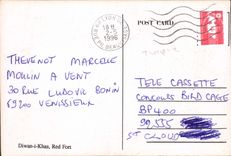 POST CARD
18 H
2-5
1996
THEVENOT MARCELLE
MOULIN A VENT
30 RUE LUDOVIC BONIN
69200 VENISSIEUX
TELE CASSETTE
CONCOURS BIRD CAGE
BP400
99555
ST CLOUD
Diwan-i-Khas, Red Fort